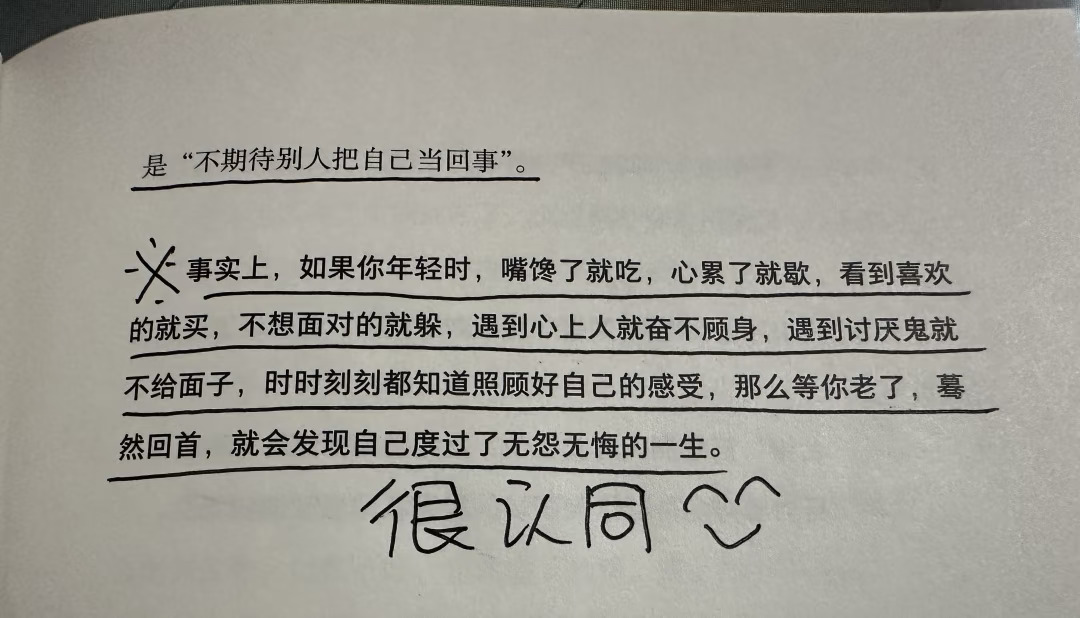 是“不期待别人把自己当回事”。
事实上，如果你年轻时，嘴馋了就吃，心累了就歇，看到喜欢
的就买，不想面对的就躲，遇到心上人就奋不顾身，遇到讨厌鬼就
不给面子，时时刻刻都知道照顾好自己的感受，那么等你老了，蓦
然回首，就会发现自己度过了无怨无悔的一生。
很认同